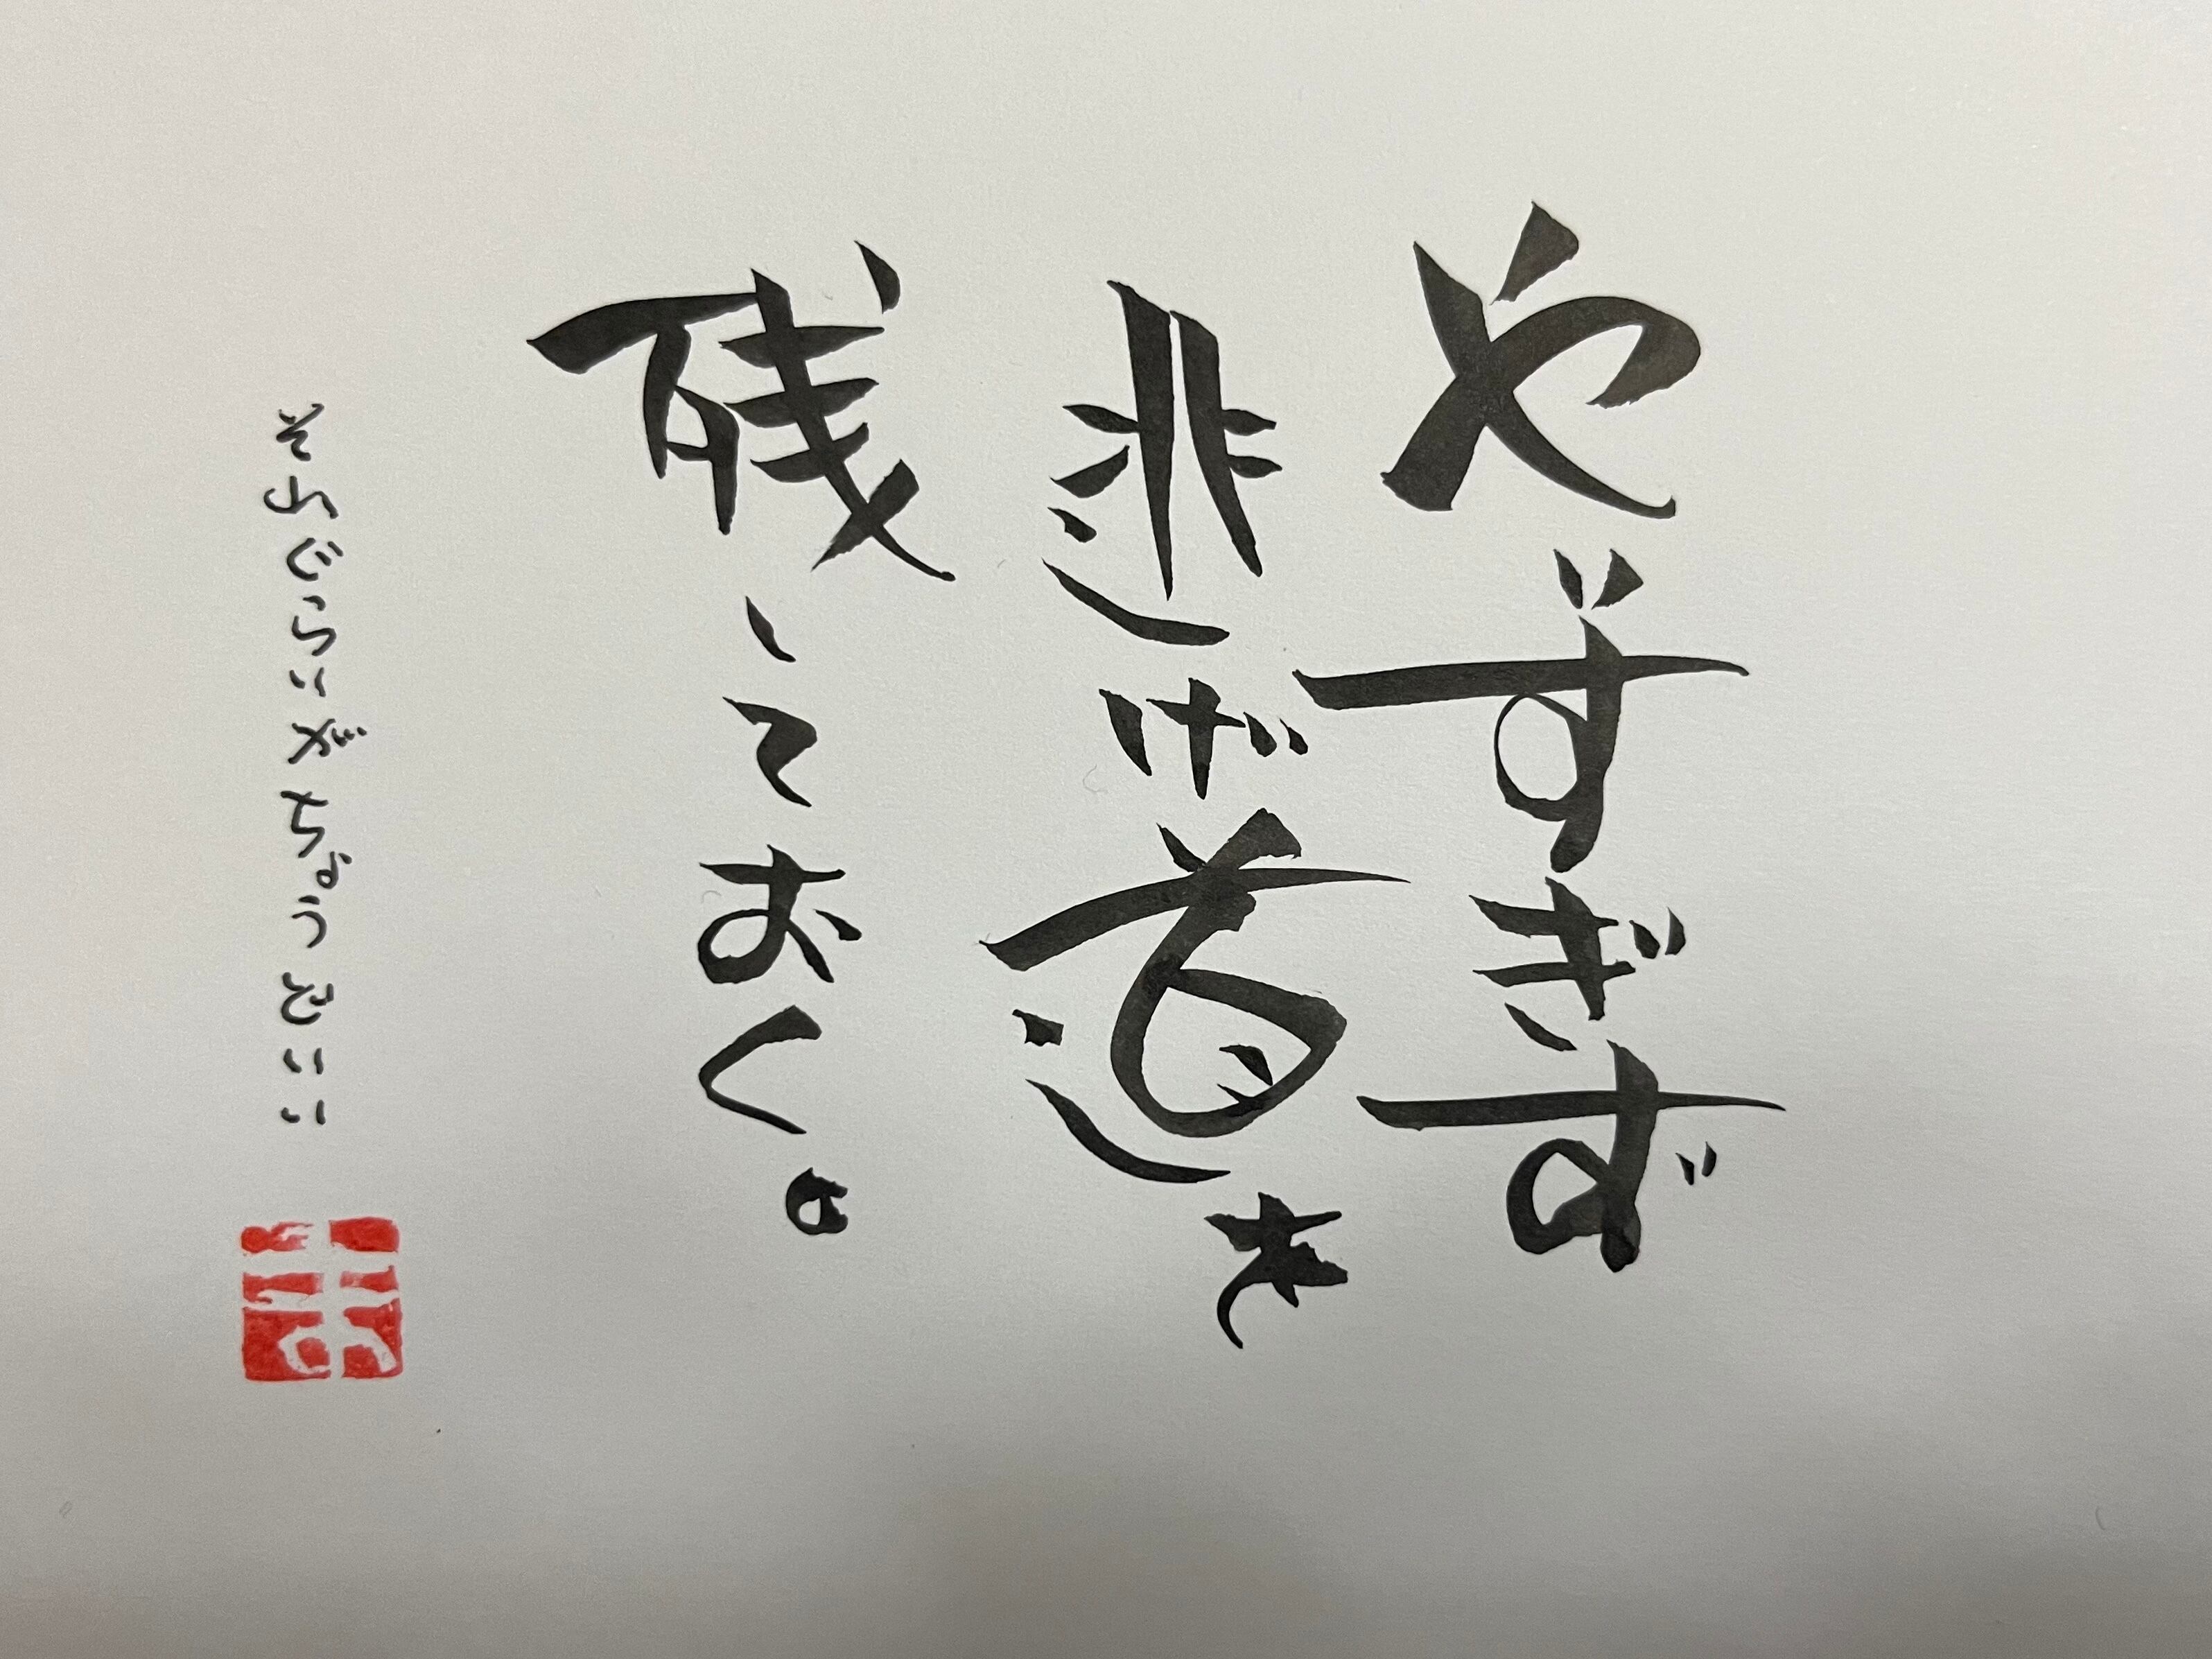 やりすぎず
逃げ道を
残しておく。
そんぐらいがちょうどいい